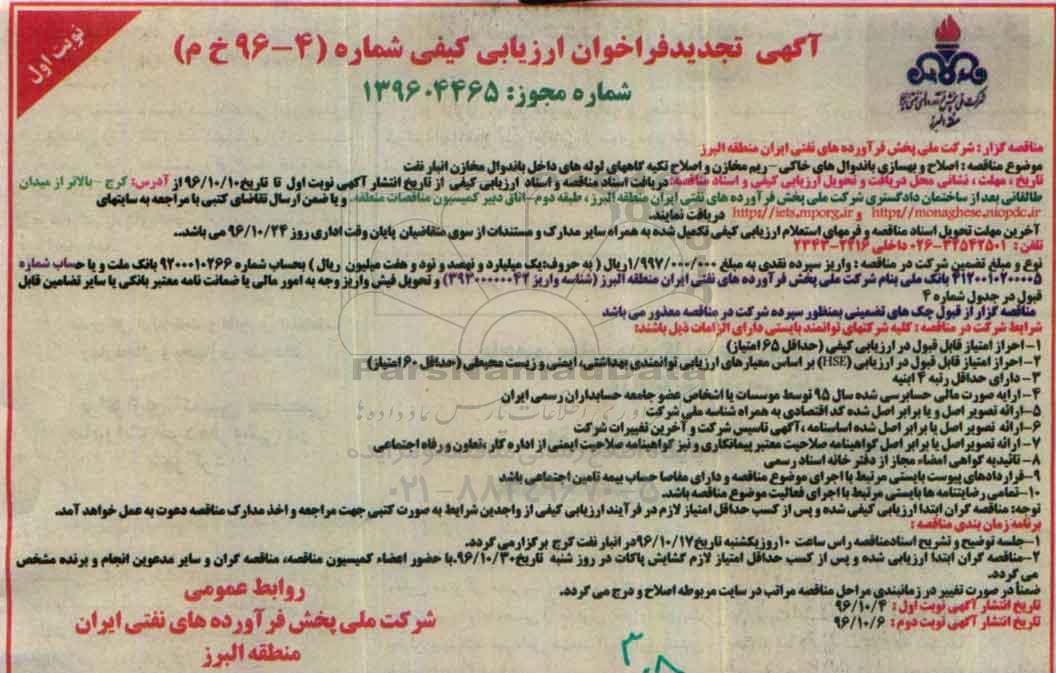 نوبت اول
آگهی تجدیدفراخوان ارزیابی کیفی شماره (۴-۹۶ خ م)
شماره مجوز: ۱۳۹۶۰۴۴۶۵
شرکت ملی پخش فرآورده‌های نفتی ایران
منطقه البرز
مناقصه گزار: شرکت ملی پخش فرآورده های نفتی ایران منطقه البرز
موضوع مناقصه: اصلاح و بهسازی باندوال های خاکی - ریم مخازن و اصلاح تکیه گاههای لوله های داخل باندوال مخازن انبار نفت
تاریخ، مهلت، نشانی محل دریافت و تحویل ارزیابی کیفی و اسناد مناقصه: دریافت اسناد مناقصه و اسناد ارزیابی کیفی از تاریخ انتشار آگهی نوبت اول تا تاریخ ۹۶/۱۰/۱۰ از آدرس: کرج - بالاتر از میدان
طالقانی بعد از ساختمان دادگستری شرکت ملی پخش فرآورده های نفتی ایران منطقه البرز، طبقه دوم-اتاق دبیر کمیسیون مناقصات منطقه و یا ضمن ارسال تقاضای کتبی با مراجعه به سایتهای
http://monaghese.niopdc.ir و http://iets.mporg.ir دریافت نمایند.
آخرین مهلت تحویل اسناد مناقصه و فرمهای استعلام ارزیابی کیفی تکمیل شده به همراه سایر مدارک و مستندات از سوی متقاضیان پایان وقت اداری روز ۹۶/۱۰/۲۴ می باشد.
تلفن: ۳۲۵۴۲۵۰۱-۰۲۶ داخلی ۲۴۱۶-۲۳۴۳
نوع و مبلغ تضمین شرکت در مناقصه: واریز سپرده نقدی به مبلغ ۱/۹۹۷/۰۰۰/۰۰۰ ریال (به حروف: یک میلیارد و نهصد و نود و هفت میلیون ریال) بحساب شماره ۹۲۰۰۰۱۰۲۶۶ بانک ملت و یا حساب شماره
۴۱۲۰۰۱۰۲۰۰۰۰۵ بانک ملی بنام شرکت ملی پخش فرآورده های نفتی ایران منطقه البرز (شناسه واریز ۳۹۳۰۰۰۰۰۰۴۲) و تحویل فیش واریز وجه به امور مالی یا ضمانت نامه معتبر بانکی یا سایر تضامین قابل
قبول در جدول شماره ۴
مناقصه گزار از قبول چک های تضمینی بمنظور سپرده شرکت در مناقصه معذور می باشد
شرایط شرکت در مناقصه: کلیه شرکتهای توانمند بایستی دارای الزامات ذیل باشند:
۱-احراز امتیاز قابل قبول در ارزیابی کیفی (حداقل ۶۵ امتیاز)
۲-احراز امتیاز قابل قبول در ارزیابی (HSE) بر اساس معیارهای ارزیابی توانمندی بهداشتی، ایمنی و زیست محیطی (حداقل ۶۰ امتیاز)
۳-دارای حداقل رتبه ۴ ابنیه
۴-ارایه صورت مالی حسابرسی شده سال ۹۵ توسط موسسات یا اشخاص عضو جامعه حسابداران رسمی ایران
۵-ارائه تصویر اصل و یا برابر اصل شده کد اقتصادی به همراه شناسه ملی شرکت
۶-ارائه تصویر اصل یا برابر اصل شده اساسنامه، آگهی تاسیس شرکت و آخرین تغییرات شرکت
۷-ارائه تصویر اصل یا برابر اصل گواهینامه صلاحیت معتبر پیمانکاری و نیز گواهینامه صلاحیت ایمنی از اداره کار، تعاون و رفاه اجتماعی
۸-تائیدیه گواهی امضاء مجاز از دفتر خانه اسناد رسمی
۹-قراردادهای پیوست بایستی مرتبط با اجرای موضوع مناقصه و دارای مفاصا حساب بیمه تامین اجتماعی باشد
۱۰-تمامی رضایتنامه ها بایستی مرتبط با اجرای فعالیت موضوع مناقصه باشد.
توجه: مناقصه گران ابتدا ارزیابی کیفی شده و پس از کسب حداقل امتیاز لازم در فرآیند ارزیابی کیفی از واجدین شرایط به صورت کتبی جهت مراجعه و اخذ مدارک مناقصه دعوت به عمل خواهد آمد.
برنامه زمان بندی مناقصه:
۱-جلسه توضیح و تشریح اسناد مناقصه راس ساعت ۱۰ روز یکشنبه تاریخ ۹۶/۱۰/۱۷ در انبار نفت کرج برگزار می گردد.
۲-مناقصه گران ابتدا ارزیابی شده و پس از کسب حداقل امتیاز لازم گشایش پاکات در روز شنبه تاریخ ۹۶/۱۰/۳۰ با حضور اعضاء کمیسیون مناقصه، مناقصه گران و سایر مدعوین انجام و برنده مشخص
می گردد.
ضمناً در صورت تغییر در زمانبندی مراحل مناقصه مراتب در سایت مربوطه اصلاح و درج می گردد.
تاریخ انتشار آگهی نوبت اول: ۹۶/۱۰/۴
تاریخ انتشار آگهی نوبت دوم: ۹۶/۱۰/۶
روابط عمومی
شرکت ملی پخش فرآورده های نفتی ایران
منطقه البرز
ParsNamadData
۰۲۱-۸۸۳۴۹۶۷۰-۵